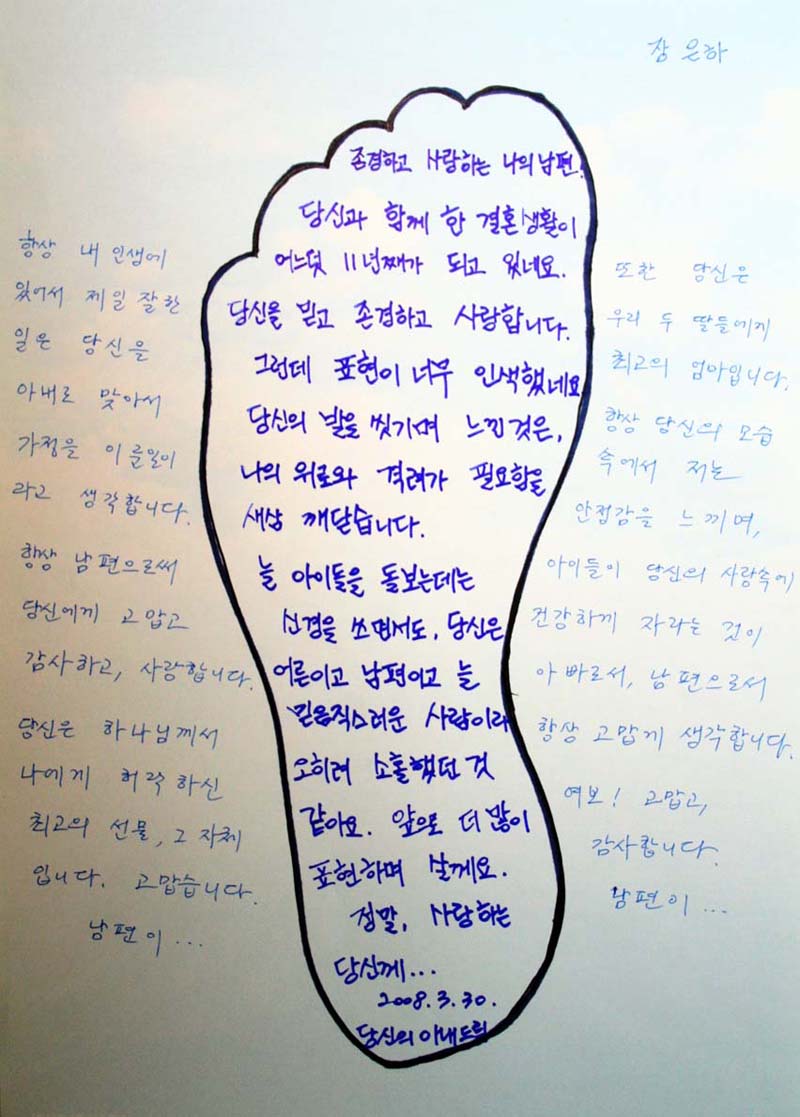 장은하
존경하고 사랑하는 나의 남편.
당신과 함께 한 결혼생활이
어느덧 11년째가 되고 있네요.
당신을 믿고 존경하고 사랑합니다.
그런데 표현이 너무 인색했네요
당신의 발을 씻기며 느낀것은,
나의 위로와 격려가 필요함을
새삼 깨닫습니다.
늘 아이들을 돌보는데는
신경을 쓰면서도, 당신은
어른이고 남편이고 늘
믿음직스러운 사람이라
오히려 소홀했던 것
같아요. 앞으로 더 많이
표현하며 살께요.
정말, 사랑하는
당신께...
2008.3.30.
당신의 아내드림
항상 내 인생에
있어서 제일 잘한
일은 당신을
아내로 맞아서
가정을 이룬일이
라고 생각합니다.
항상 남편으로써
당신에게 고맙고
감사하고, 사랑합니다.
당신은 하나님께서
나에게 허락하신
최고의 선물, 그 자체
입니다. 고맙습니다.
남편이...
또한 당신은
우리 두 딸들에게
최고의 엄마입니다.
항상 당신의 모습
속에서 저는
안정감을 느끼며,
아이들이 당신의 사랑속에
건강하게 자라는 것이
아빠로서, 남편으로서
항상 고맙게 생각합니다.
여보! 고맙고,
감사합니다.
남편이...